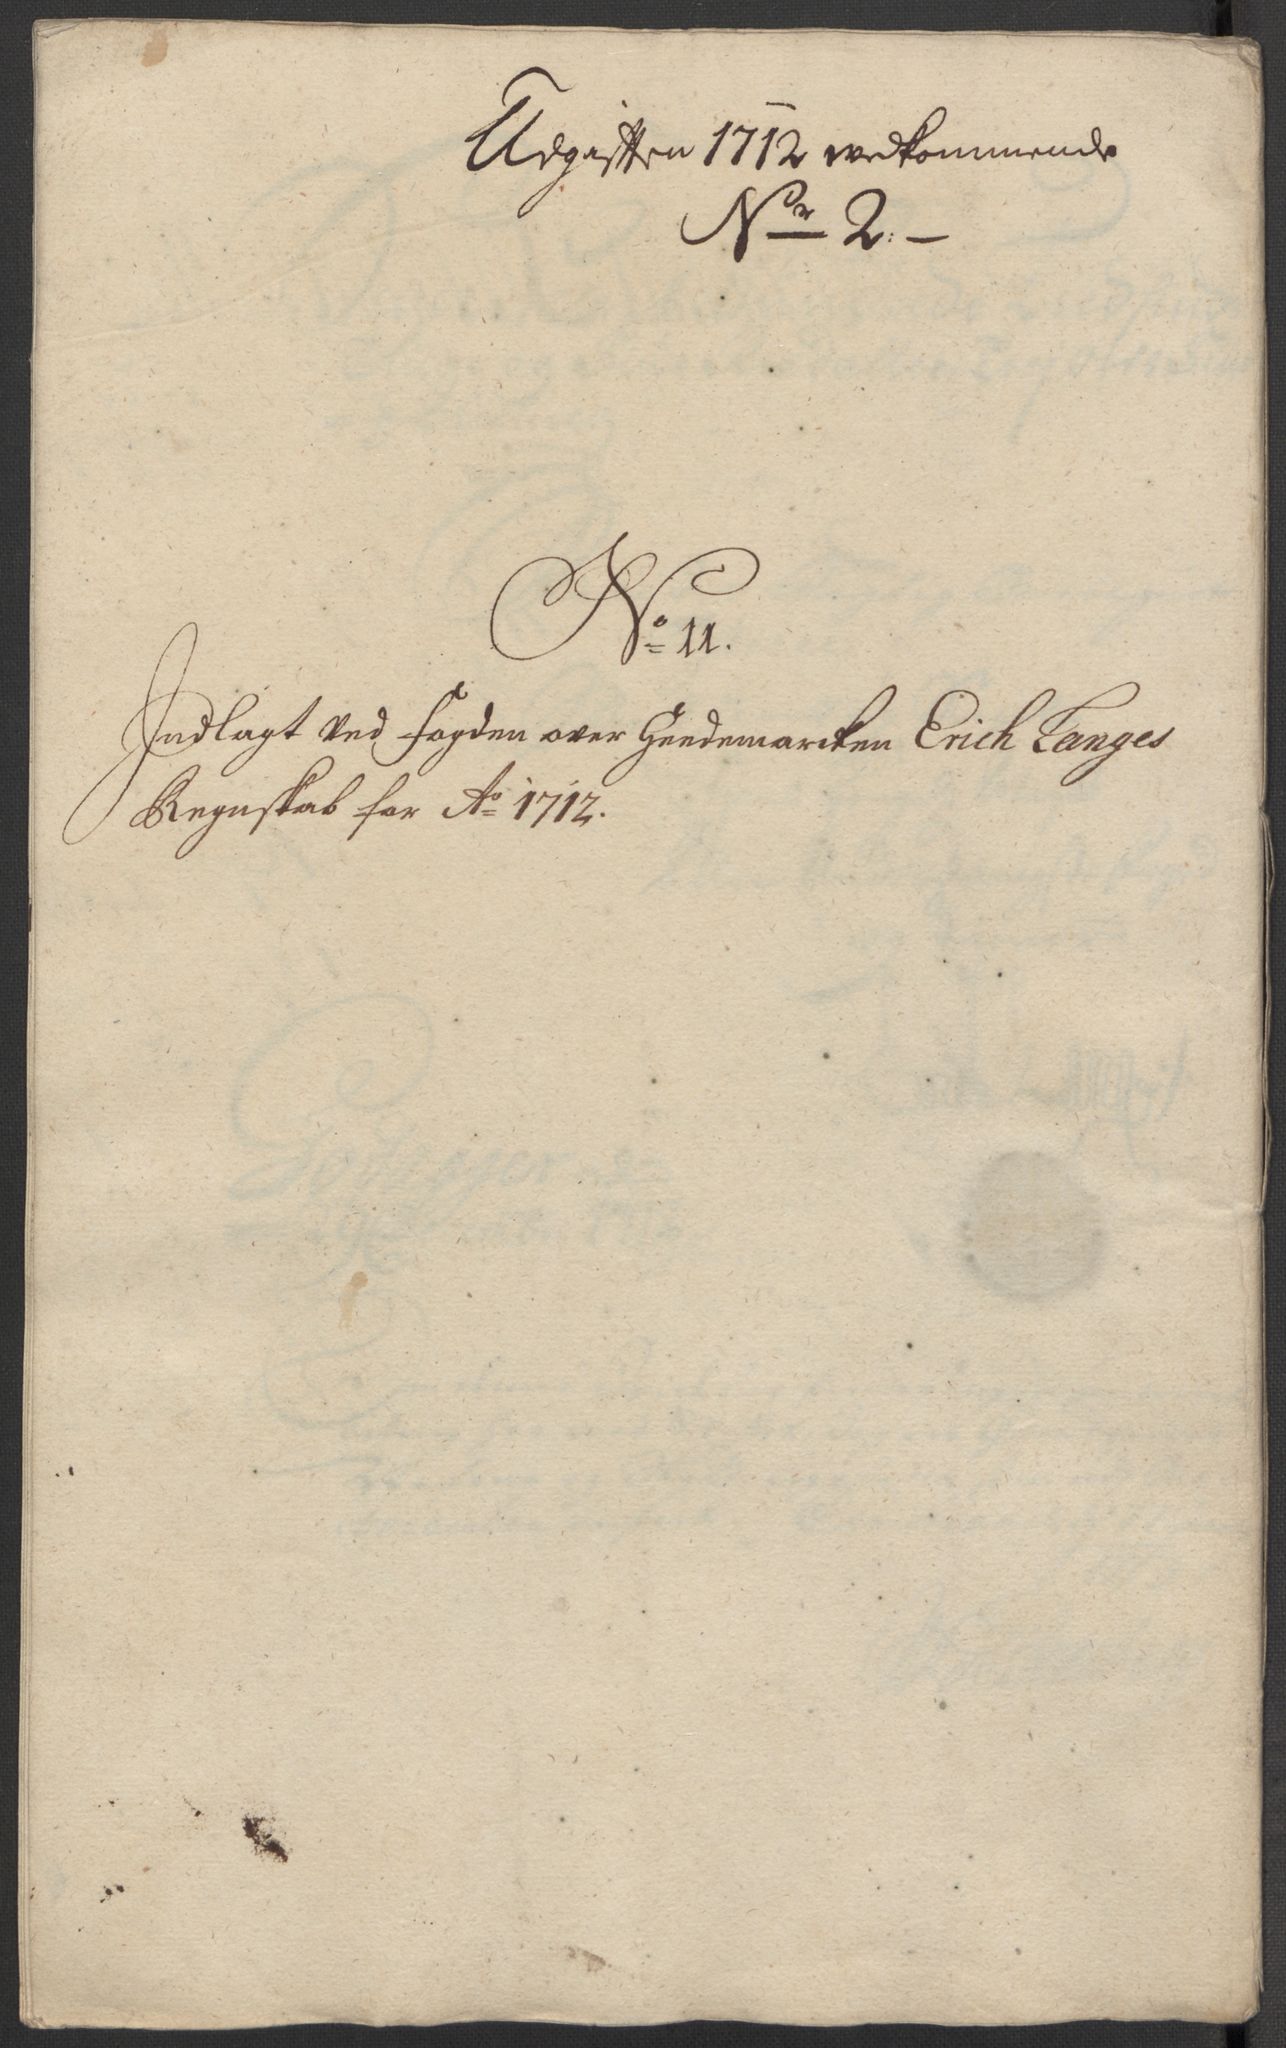 Udgifften 1712 vedkommende
Nr 2. –
No 11.
Indlagt ved fogden over Heedemarcken Erich Langes
Regnskab for Ao 1712.